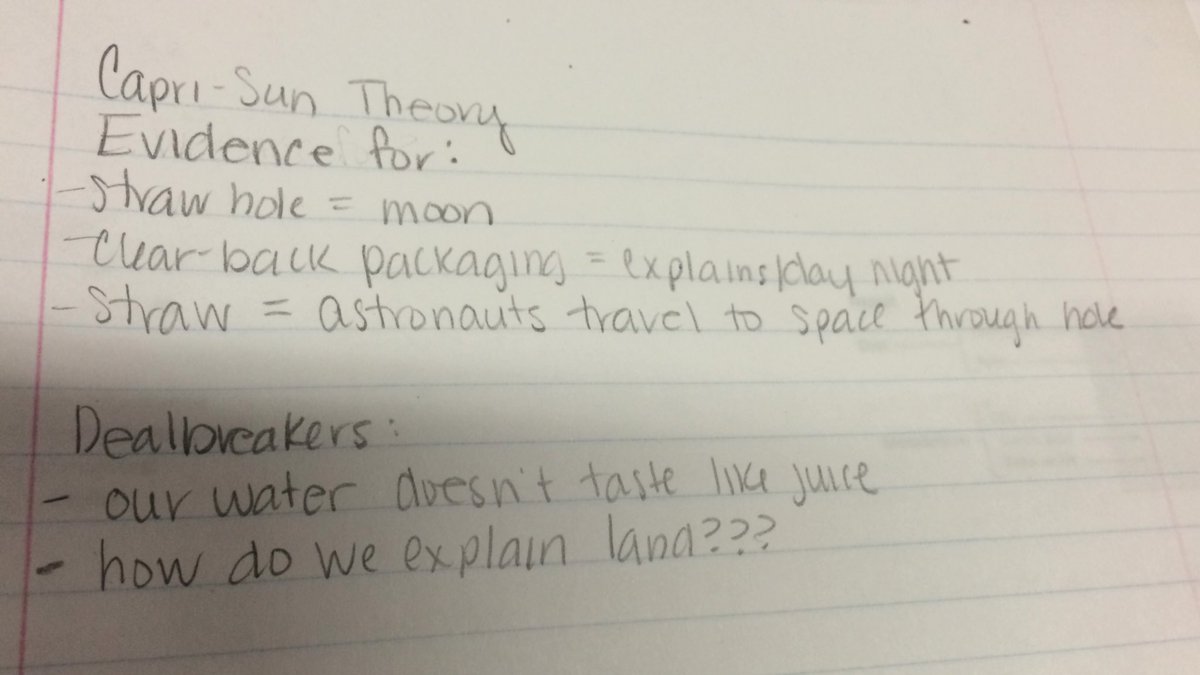 Capri-Sun Theory
Evidence for:
- Straw hole = moon
- Clear-back packaging = explains/day night
- Straw = astronauts travel to space through hole
Dealbreakers:
- our water doesn't taste like juice
- how do we explain land???